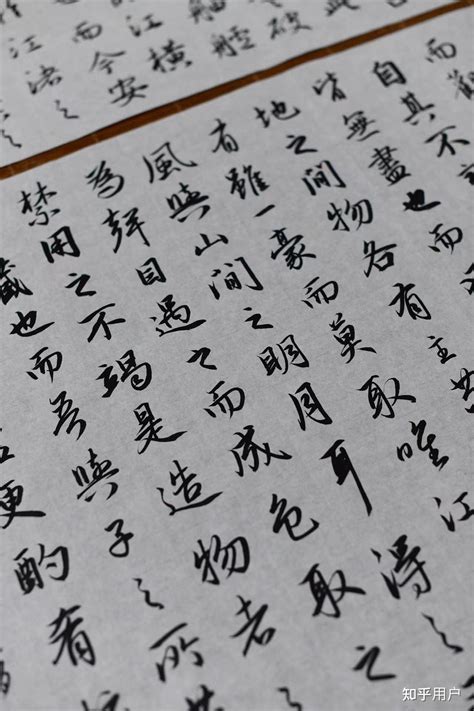 此
破
艫
橫
而今安
江渚之
而觀
自其不
皆無盡也而
地之間物各有主
有雖一豪而莫取唯江
風與山間之明月耳得之
為聲目遇之而成色取之
禁用之不竭是造物者
藏也而吾與子之所共
更酌肴
知乎用户